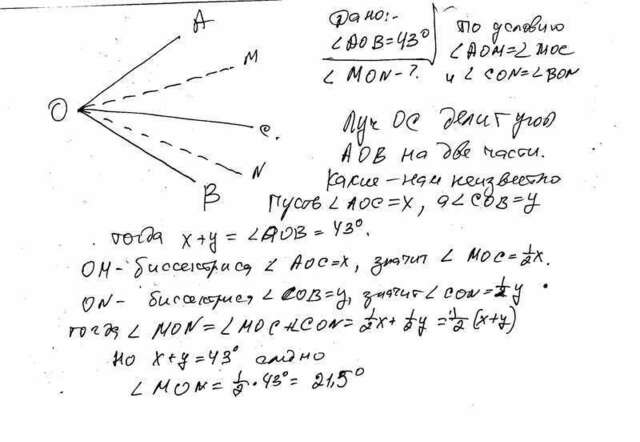 A
M
O
C.
N
B
Дано:-
∠AOB=43°
∠MON-?.
По условию
∠AOM=∠MOC
и ∠CON=∠BON
Луч OC делит угол
AOB на две части.
Какие-нам неизвестно
Пусть ∠AOC=x, а ∠COB=y
тогда x+y=∠AOB=43°.
OM-биссектриса ∠AOC=x, значит ∠MOC=½x.
ON- биссектриса ∠COB=y, значит ∠CON=½y.
тогда ∠MON=∠MOC+∠CON=½x+½y=½(x+y)
Но x+y=43°
∠MON=½·43°=21,5°